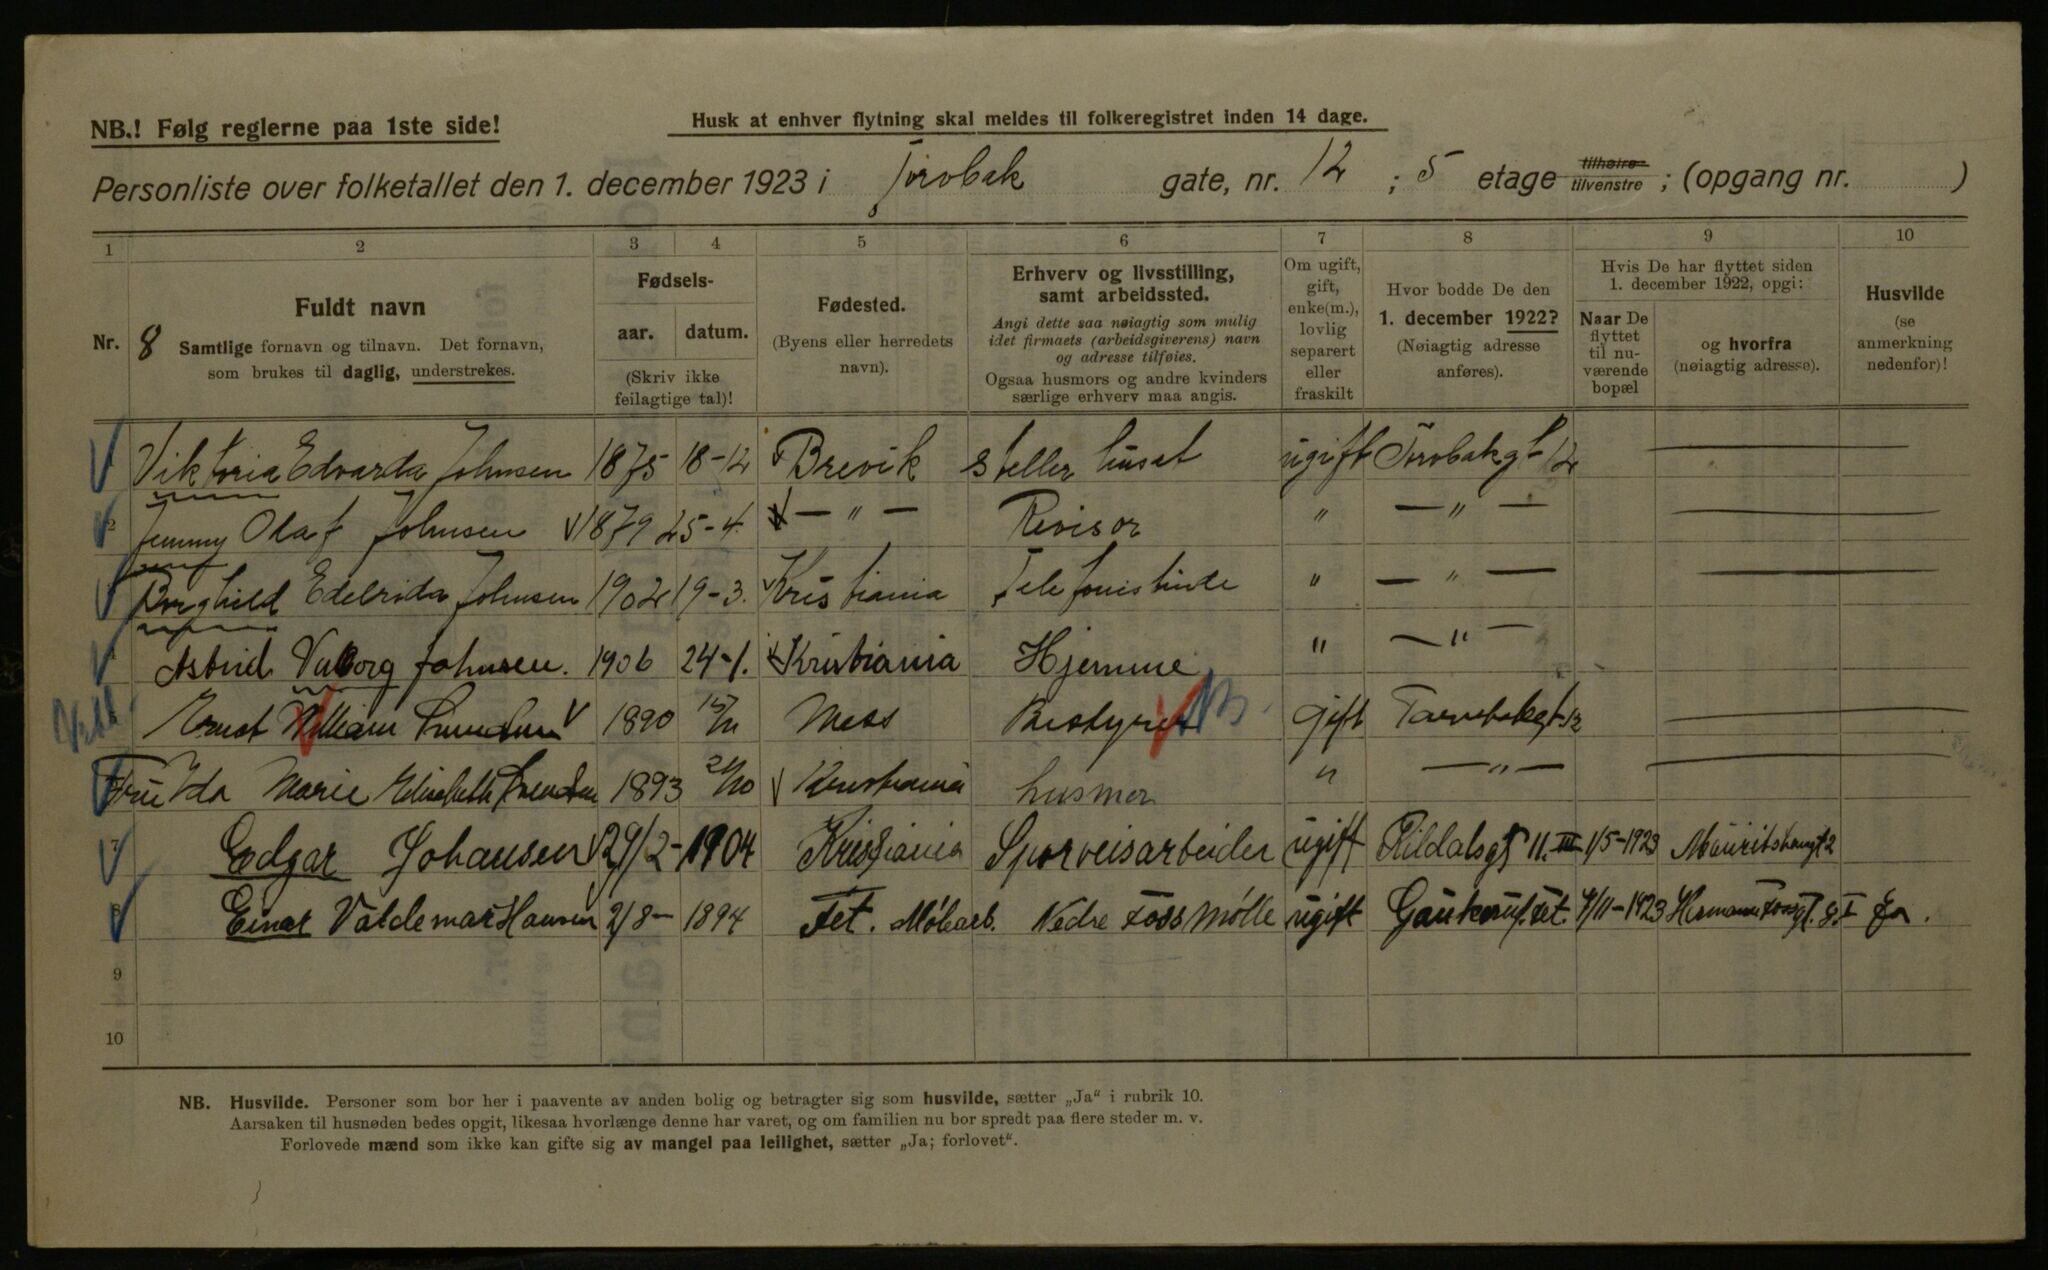 NB.! Følg reglerne paa 1ste side!
Husk at enhver flytning skal meldes til folkeregistret inden 14 dage.
Personliste over folketallet den 1. december 1923 i Torvbak gate, nr. 12 ; 5 etage tilhøire tilvenstre ; (opgang nr. )
1 2 3 4 5 6 7 8 9 10
Nr. 8
Fuldt navn
Samtlige fornavn og tilnavn. Det fornavn,
som brukes til daglig, understrekes.
Fødsels-
aar. datum.
(Skriv ikke
feilagtige tal)!
Fødested.
(Byens eller herredets
navn).
Erhverv og livsstilling,
samt arbeidssted.
Angi dette saa nøiagtig som mulig
idet firmaets (arbeidsgiverens) navn
og adresse tilføies.
Ogsaa husmors og andre kvinders
særlige erhverv maa angis.
Om ugift,
gift,
enke(m.),
lovlig
separert
eller
fraskilt
Hvor bodde De den
1. december 1922?
(Nøiagtig adresse
anføres).
Hvis De har flyttet siden
1. december 1922, opgi:
Naar De
flyttet
til nu-
værende
bopæl
og hvorfra
(nøiagtig adresse).
Husvilde
(se
anmerkning
nedenfor)!
Viktoria Edvarda Johnsen 1875 18-12 Brevik steller huset ugift Torvbakgt 12 —
2 Jemmy Olaf Johnsen 1879 25-4. — " — Revisor " — " — —
Borghild Edelrida Johnsen 1902 19-3. Kristiania Telefonistinde " — " — —
4 Astrid Johnsen. 1906 24-1. Kristiania Hjemme " — " —
Ernst William 1890 15/11 Moss Bestyrer NB. gift 12 —
Fru Ida Marie Elisabeth 1893 21/10 Kristiania husmor " — " — —
7 Edgar Johansen 29/2-1904 Kristiania Sporveisarbeider ugift 11. III 1/5-1923 2
8 Einar Valdemar Hansen 2/8- 1894 Fet. Møbarb. Nedre Foss Mølle ugift Fet. 4/11-1923 Hermann Fossgt. 8. I Ja.
9
10
NB. Husvilde. Personer som bor her i paavente av anden bolig og betragter sig som husvilde, sætter „Ja“ i rubrik 10.
Aarsaken til husnøden bedes opgit, likesaa hvorlænge denne har varet, og om familien nu bor spredt paa flere steder m. v.
Forlovede mænd som ikke kan gifte sig av mangel paa leilighet, sætter „Ja; forlovet“.